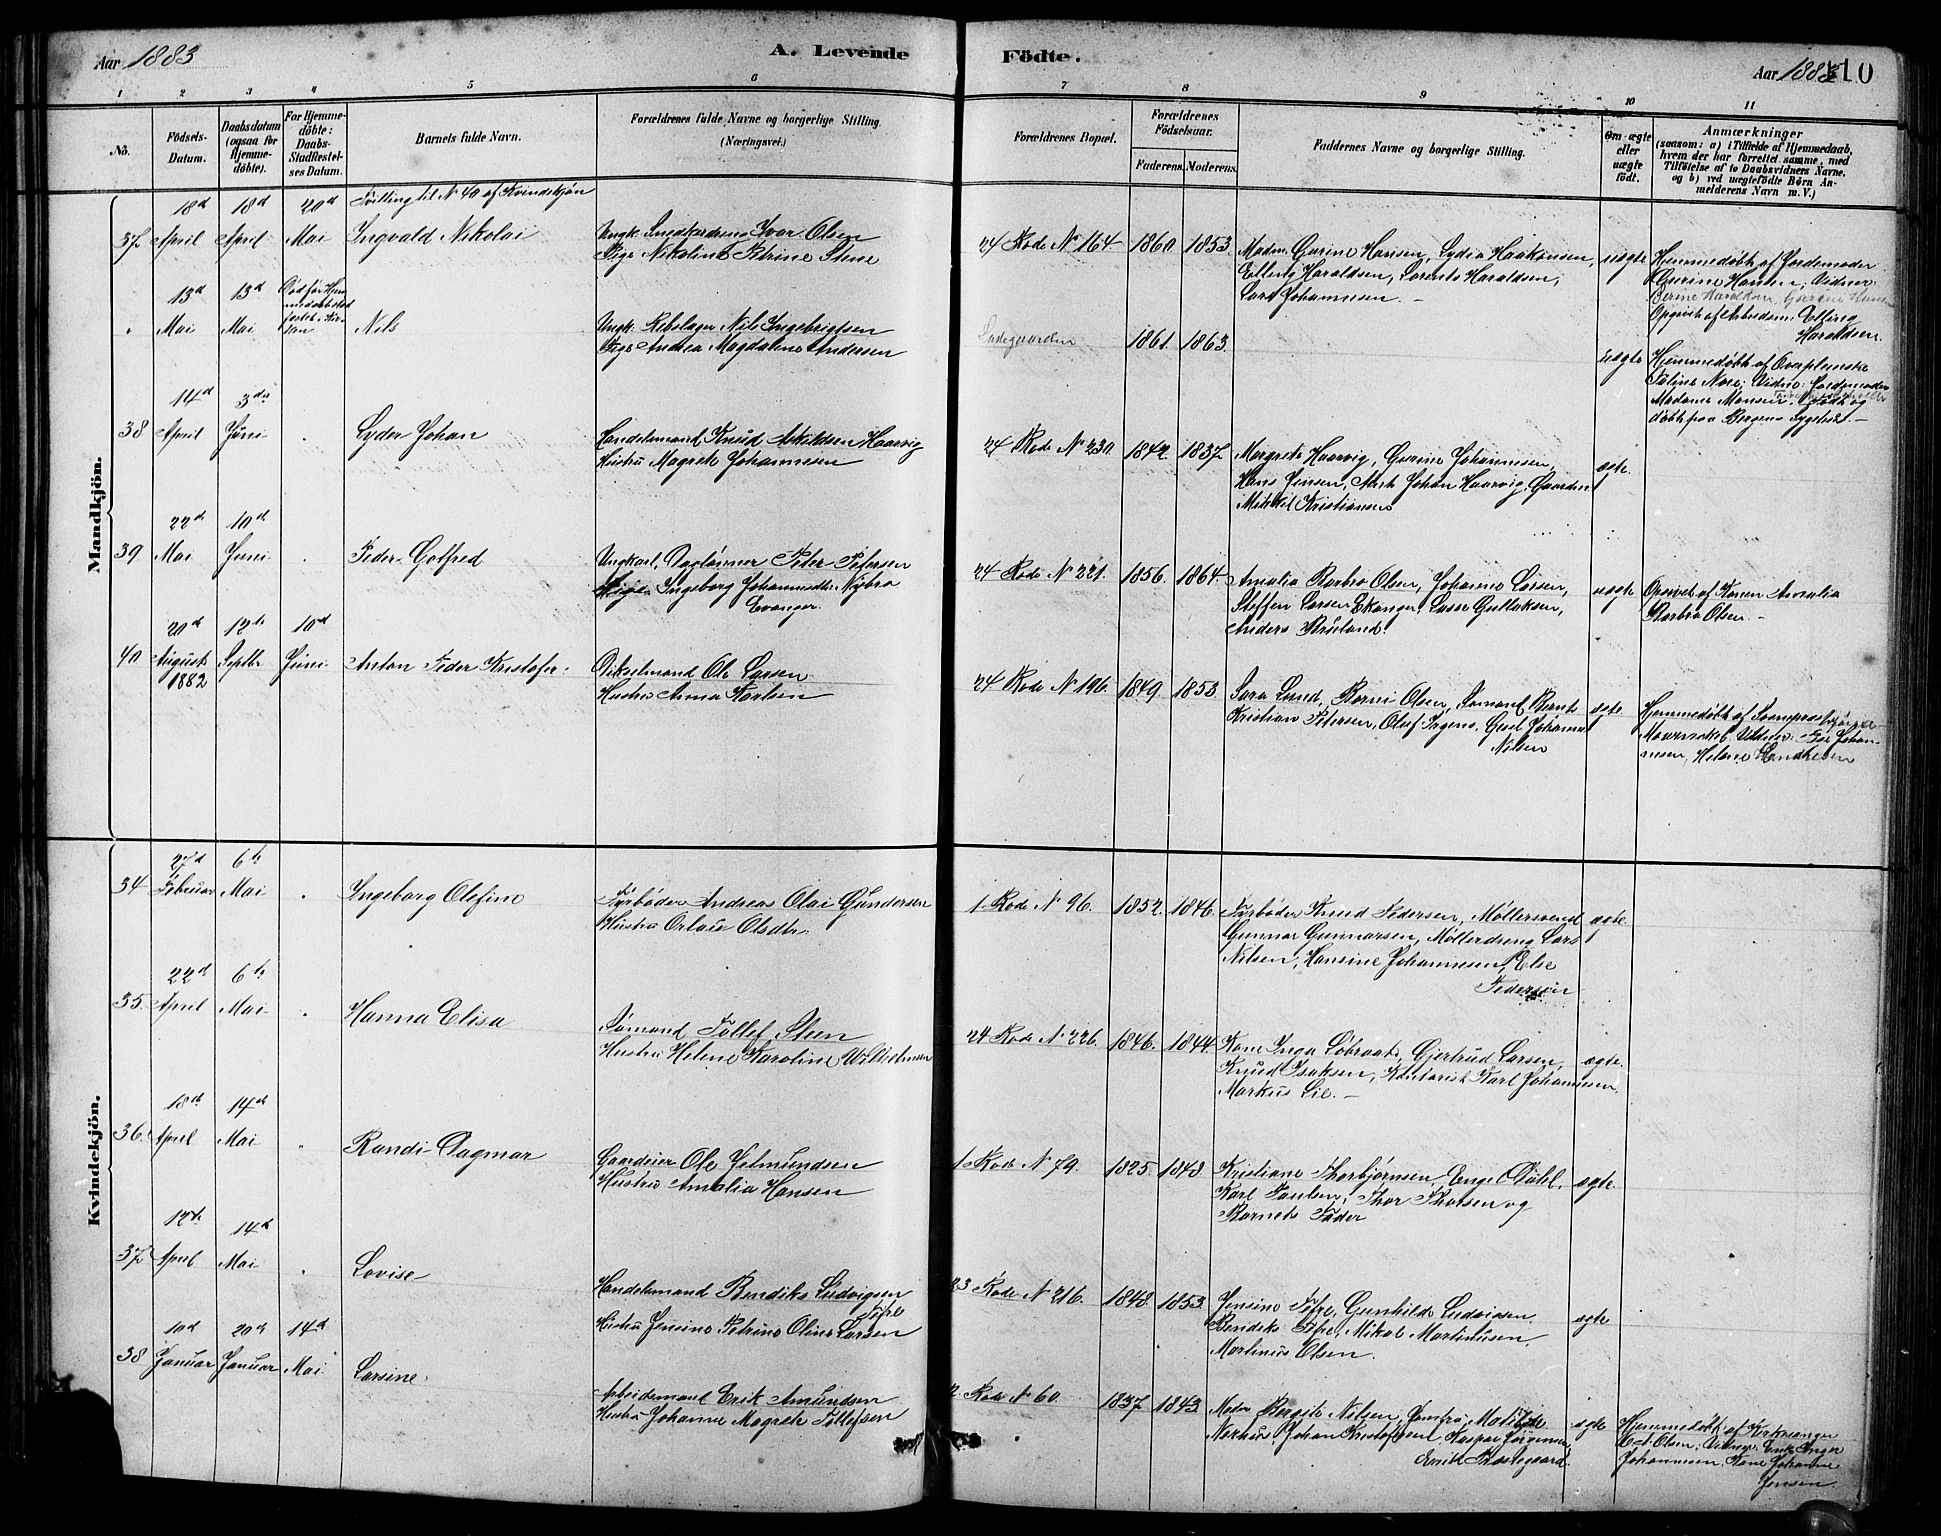 Aar 1883
A. Levende
Födte.
Aar 1883
110
1 2 3 4 5 6 7 8 9 10 11
No.
Födsels-
Datum.
Daabsdatum
(ogsaa for
Hjemme-
döbte).
For Hjemme-
döbte:
Daabs-
Stadfæstel-
ses Datum.
Barnets fulde Navn.
Forældrenes fulde Navne og borgerlige Stilling
(Næringsvei.)
Forældrenes Bopæl.
Forældrenes
Födselsaar.
Faderens. Moderens.
Faddernes Navne og borgerlige Stilling.
Om ægte
eller
uægte
födt.
Anmærkninger
(saasom: a) i Tilfælde af Hjemmedaab,
hvem der har forrettet samme, med
Tilföielse af to Daabsvidners Navne.
og b) ved uægtefödte Börn An-
melderens Navn m. V.)
Mandkjön.
Tvilling til No 40 af Kvindekjön
18d 18d 20d
37 April April Mai Ingvald Nikolai
Ungk. Snedkerdreng Ivar Olsen
Pige Nikoline Petrine Stene
24 Rode No 164 1860 1853
Madm. Gurine Hansen, Lydia Haakonsen,
Ellert Haraldsen, Lorents Haraldsen,
Lars Johannesen. —
uægte
Hjemmedøbt af Jordemoder
Gurine Hansen, Vidner:
Berine Haraldsen, Gurine Hansen
Opgivet af Arbeidsm. Elling
Haraldsen.
13d 13d
Mai Mai Nils
Ungk. Rebslager Nils Ingebrigtsen
Pige Andrea Magdalene Andersen
Ladegaarden 1861. 1863.
uægte
Hjemmedøbt af Overpleierske
Vidner: Jordemoder
Madame Monsen. Født og
døbt paa Bergens Sygehus. —
14d 3die
38 April Juni Lyder Johan
Handelsmand Knud Askildsen Haarvig
Hustru Magrete Johannesen
24 Rode No 230 1842. 1837.
Margrete Haarvig, Gurine Johannesen,
Hans Jensen, Johan Haarvig, Gaardm.
Mikkel Kristiansen
ægte.
22d 10d
39 Mai Juni Peder Gotfred
Ungkarl, Daglønner Peter Petersen
Pige Ingeborg Johannesdtr. Nybrø
Evanger.
24 Rode No 221. 1856. 1864.
Amalia Barbro Olsen, Johanne Larsen,
Steffen Larsen Ekanger, Lasse Gullaksen,
Anders Bruland.
uægte
Opgivet af Konen Amalia
Barbro Olsen. —
20d 12te 10d
40 August Septbr Juni Anton Peder Kristofer
1882
Ole Larsen
Hustru Anna Karlsen
24 Rode No 196. 1849. 1853.
Sara Lund, Olsen, Sømand Bernt
Kristian Petersen, Olsef Johanne
Nilsen
ægte
Hjemmedøbt af Sogneprest
Vidner: Johan-
nesen, Helene Hendriksen
Kvindekjön.
27d 6te
34 Februar Mai Ingeborg Olefine
Fyrbøder Andreas Olai Gundersen
Hustru Olsdtr.
1. Rode No 96. 1852. 1846.
Fyrbøder Knud Pedersen, Møllersvend
Gunnar Gunnarsen, Møllerdreng Lars
Nilsen, Hansine Johannesen, Else
Pedersen
ægte
22d 6te
35. April Mai Hanna Elisa
Sømand Tollef Steen
Hustru Helene Karoline Wilhelmsen
24 Rode No 226. 1846. 1844.
Kone Inga Løbraat, Gjertrud Larsen,
Knud Isaksen, Kontorist Karl Johannesen,
Markus Lie. —
ægte.
18de 14d
36. April Mai Randi Dagmar
Gaardeier Ole Helmundsen
Hustru Amalia Hansen
1. Rode No 79. 1825. 1848
Kristiane Thorbjørnsen, Enge Dahl,
Karl Paulsen, Thor Tholsen og
Barnets Fader
ægte
12te 14d
37 April Mai Lovise
Handelsmand Bendiks Ludvigsen
Tofre
Hustru Jensine Petrine Oline Larsen
23 Rode No 216. 1848. 1853.
Jensine Tofre, Gunhilde Ludvigsen,
Bendiks Tofre, Mikal Martinusen,
Martinus Olsen.
ægte
10d 20d 14d
38 Januar Januar Mai Larsine
Arbeidsmand Erik Amundsen
Hustru Johanne Magrete Tollefsen
2. Rode No 60. 1837 1843.
Madm Bergite Nilsen, Jomfru Matilde
Johan Kristofersen, Kaspar Jørgensen,
Emild Præstegaard.
ægte
Hjemmedøbt af Kirkesanger
Olsen, Vidner: Erik Inger
Johannesen, Kone Johanne
Jensen